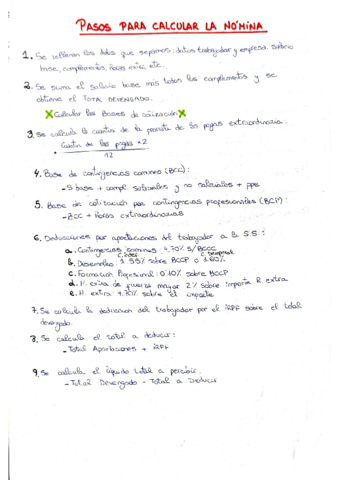 PASOS PARA CALCULAR LA NÓMINA
1. Se rellenan los datos que sepamos: datos trabajador y empresa, salario
base, complementos, horas extra, etc.
2. Se suma el salario base más todos los complementos y se
obtiene el TOTAL DEVENGADO.
X Calcular las Bases de cotización X
3. Se calcula la cuantía de la prorrata de las pagas extraordinaria:
- Cuantía de las pagas × 2
12
4. Base de contingencias comunes (BCC):
- S base + compl. salariales y no salariales + ppe
5. Base de cotización por contingencias profesionales (BCP):
- BCC + Horas extraordinarias
6. Deducciones por aportaciones del trabajador a la S.S.:
a. Contingencias comunes 4,70% s/BCCC
C. indef. C. temporal
b. Desempleo 1'55% sobre BCCP o 1'60%
c. Formación Profesional 0'10% sobre BCCP
d. H. extra de fuerza mayor 2% sobre importe H. extra
e. H. extra 4,70% sobre el importe
7. Se calcula la deducción del trabajador por el IRPF sobre el total
devengado.
8. Se calcula el total a deducir:
- Total Aportaciones + IRPF
9. Se calcula el líquido total a percibir:
- Total Devengado - Total a Deducir